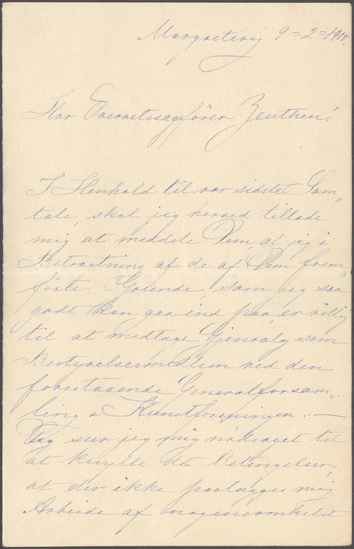 Margretevej 9-2-1918.
Hr Overretssagfører Zeuthen!
I Henhold til vor sidste Sam-
tale, skal jeg herved tillade
mig at meddele Dem at jeg i
Betragtning af de af Dem frem-
førte Grunde, som jeg saa
godt kan gaa ind paa, er villig
til at modtage Genvalg som
Bestyrelsesmedlem ved den
forestaaende Generalforsam-
ling i Kunstforeningen. —
Dog ser jeg mig nødsaget til
at knytte den Betingelse,
at der ikke paalægges mig
Arbejde af nogensomhelst